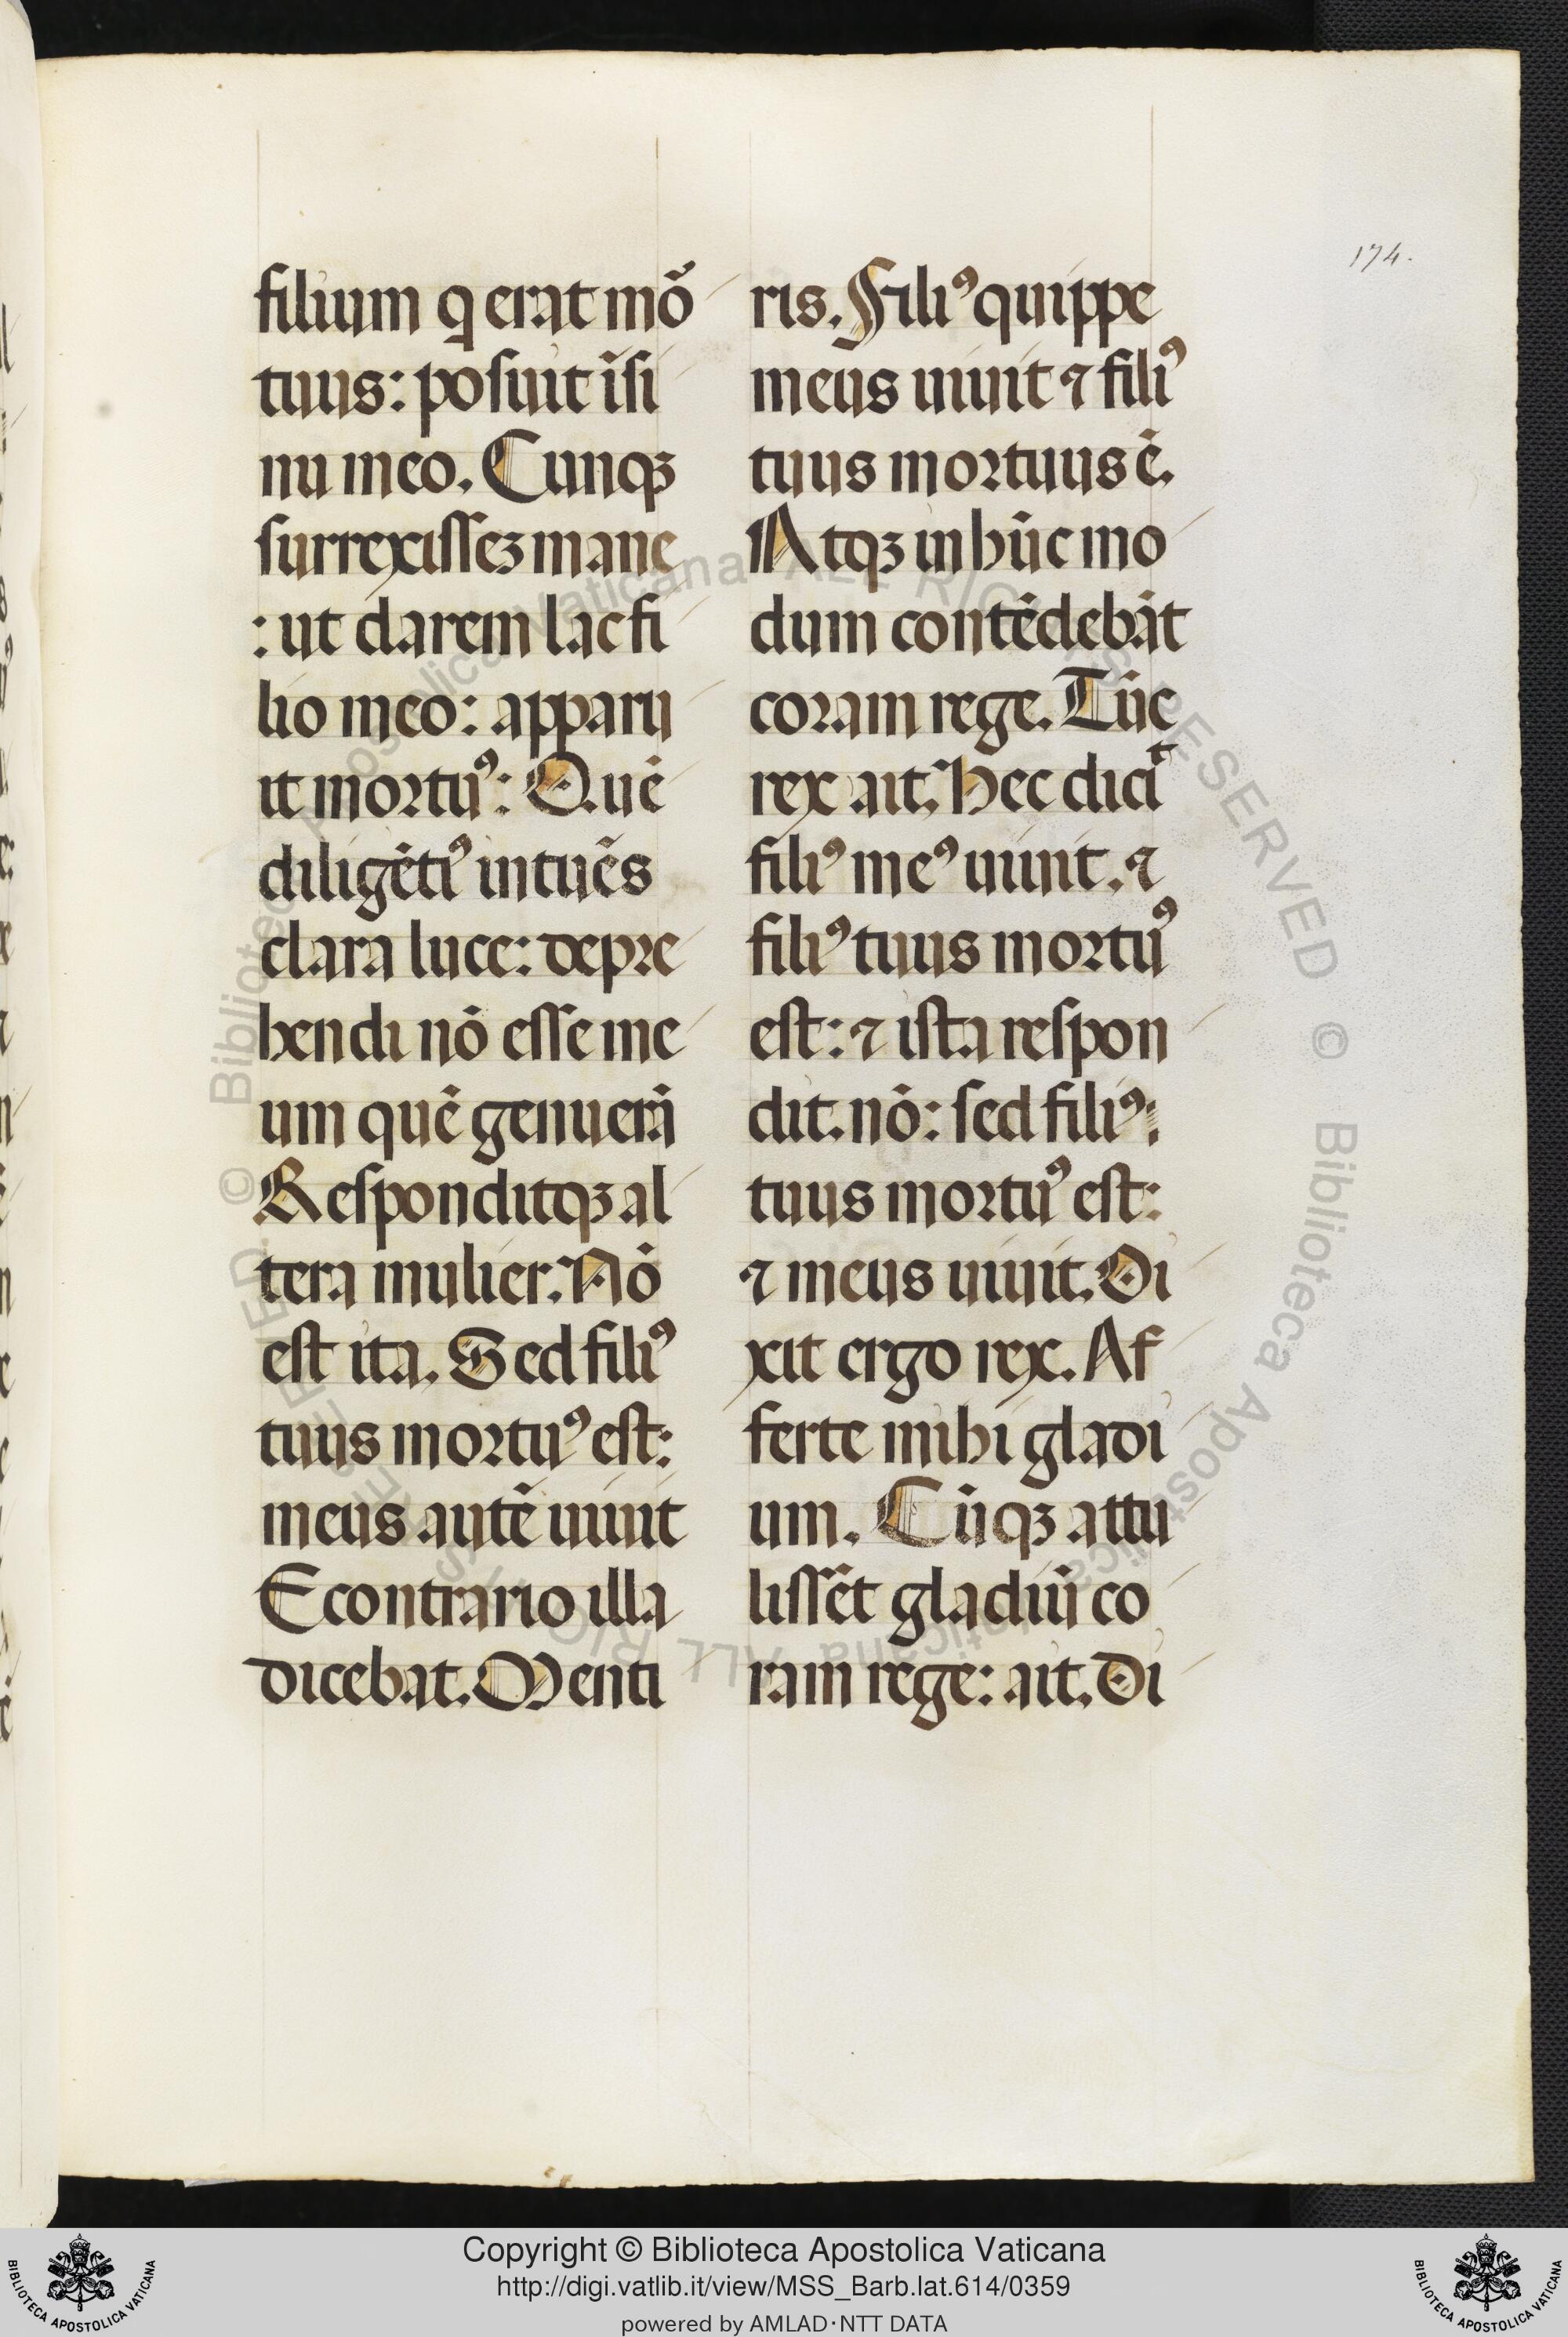 174.
filium ꝗ erat mõ
tuus: posuit ĩsi
nu meo. Cunqꝫ
surrexisseꝫ mane
: ut darem lac fi
lio meo: apparu
it mortuꝰ: Quẽ
diligẽtiꝰ intuẽs
clara luce: depre
hendi nõ esse me
um quẽ genuerã
Responditqꝫ al
tera mulier. Nõ
est ita. Sed filiꝰ
tuus mortuꝰ est:
meus autẽ uiuit
Econtrario illa
dicebat. Menti
ris. Filiꝰ quippe
meus uiuit ⁊ filiꝰ
tuus mortuus ẽ.
Atqꝫ in hũc mo
dum contẽdebãt
coram rege. Tũc
rex ait. Hec dicit
filiꝰ meꝰ uiuit. ⁊
filiꝰ tuus mortuꝰ
est: ⁊ ista respon
dit. nõ: sed filiꝰ:
tuus mortuꝰ est:
⁊ meus uiuit. Di
xit ergo rex. Af
ferte mihi gladi
um. Cũqꝫ attu
lissẽt gladiũ co
ram rege: ait. Di
© Biblioteca Apostolica Vaticana ALL RIGHTS RESERVED © Biblioteca Apostolica Vaticana ALL RIGHTS RESERVED
Copyright © Biblioteca Apostolica Vaticana
http://digi.vatlib.it/view/MSS_Barb.lat.614/0359
powered by AMLAD·NTT DATA
BIBLIOTECA APOSTOLICA VATICANA
BIBLIOTECA APOSTOLICA VATICANA